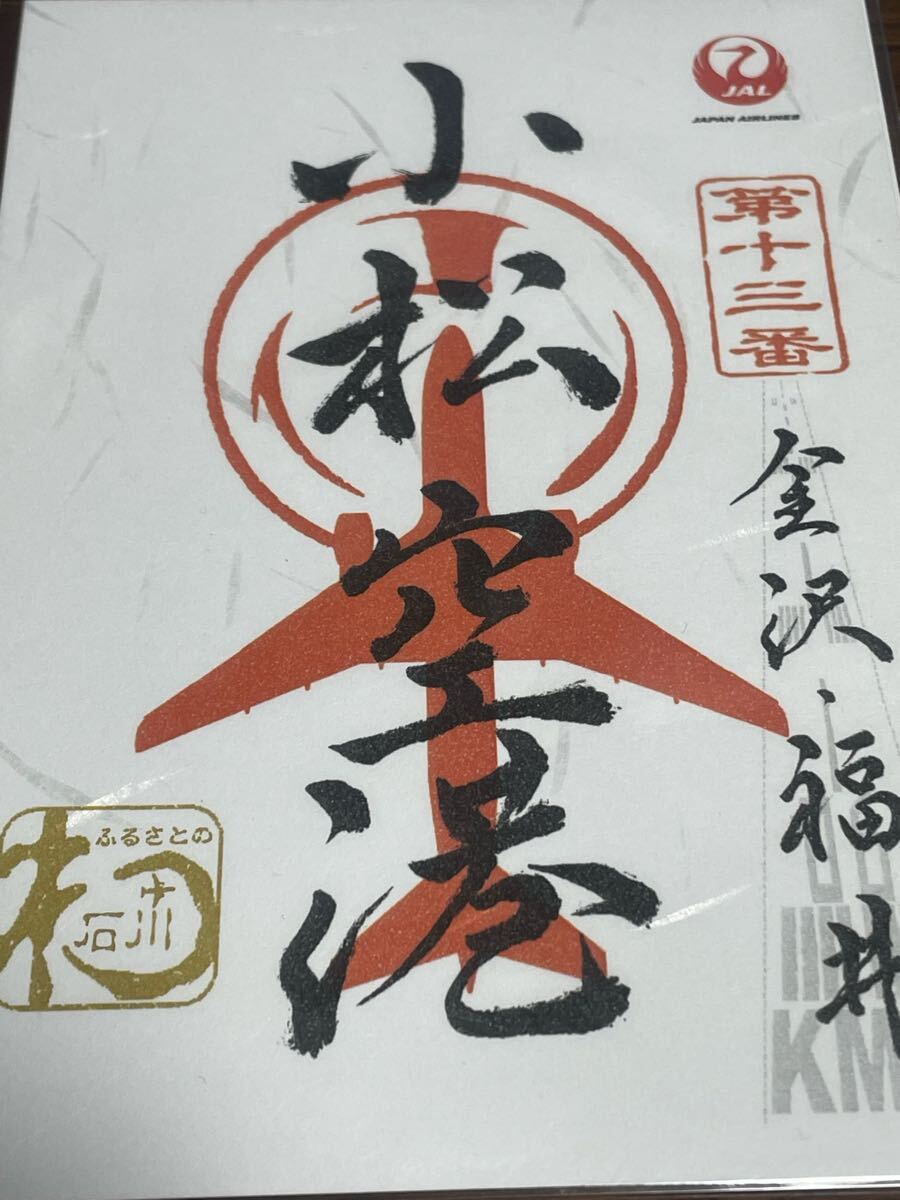 JAL
JAPAN AIRLINES
第十三番
金沢・福井
小松空港
ふるさとの
石川
KM